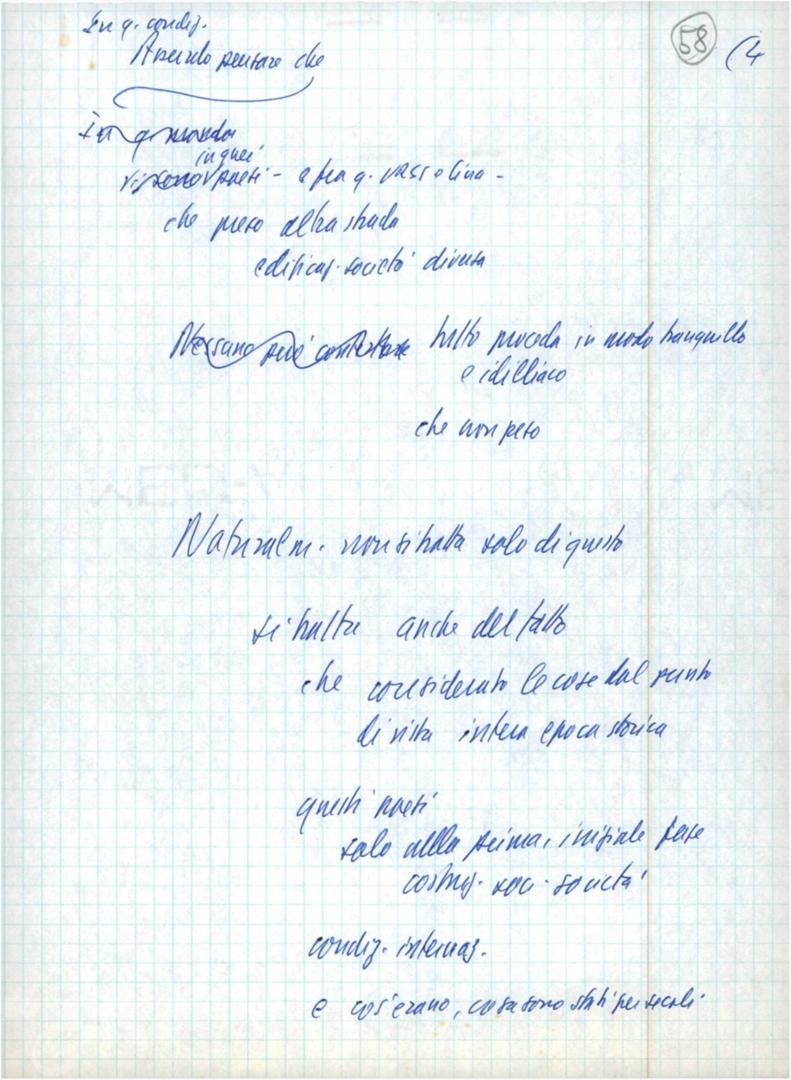 In q. condiz.
Assurdo pensare che
58 (4
In q. mondo
in quei
vi sono paesi - e fra q. Jassolina -
che preso altra strada
edificaz. società diversa
Nessuno può contestare tutto proceda in modo tranquillo
e idilliaco
che non peso
Naturalm. non si tratta solo di questo
si tratta anche del fatto
che considerato le cose dal punto
di vista intera epoca storica
questi paesi
solo alla prima, iniziale fase
costruz. soc. società
condiz. internaz.
e cos'erano, cosa sono stati per secoli